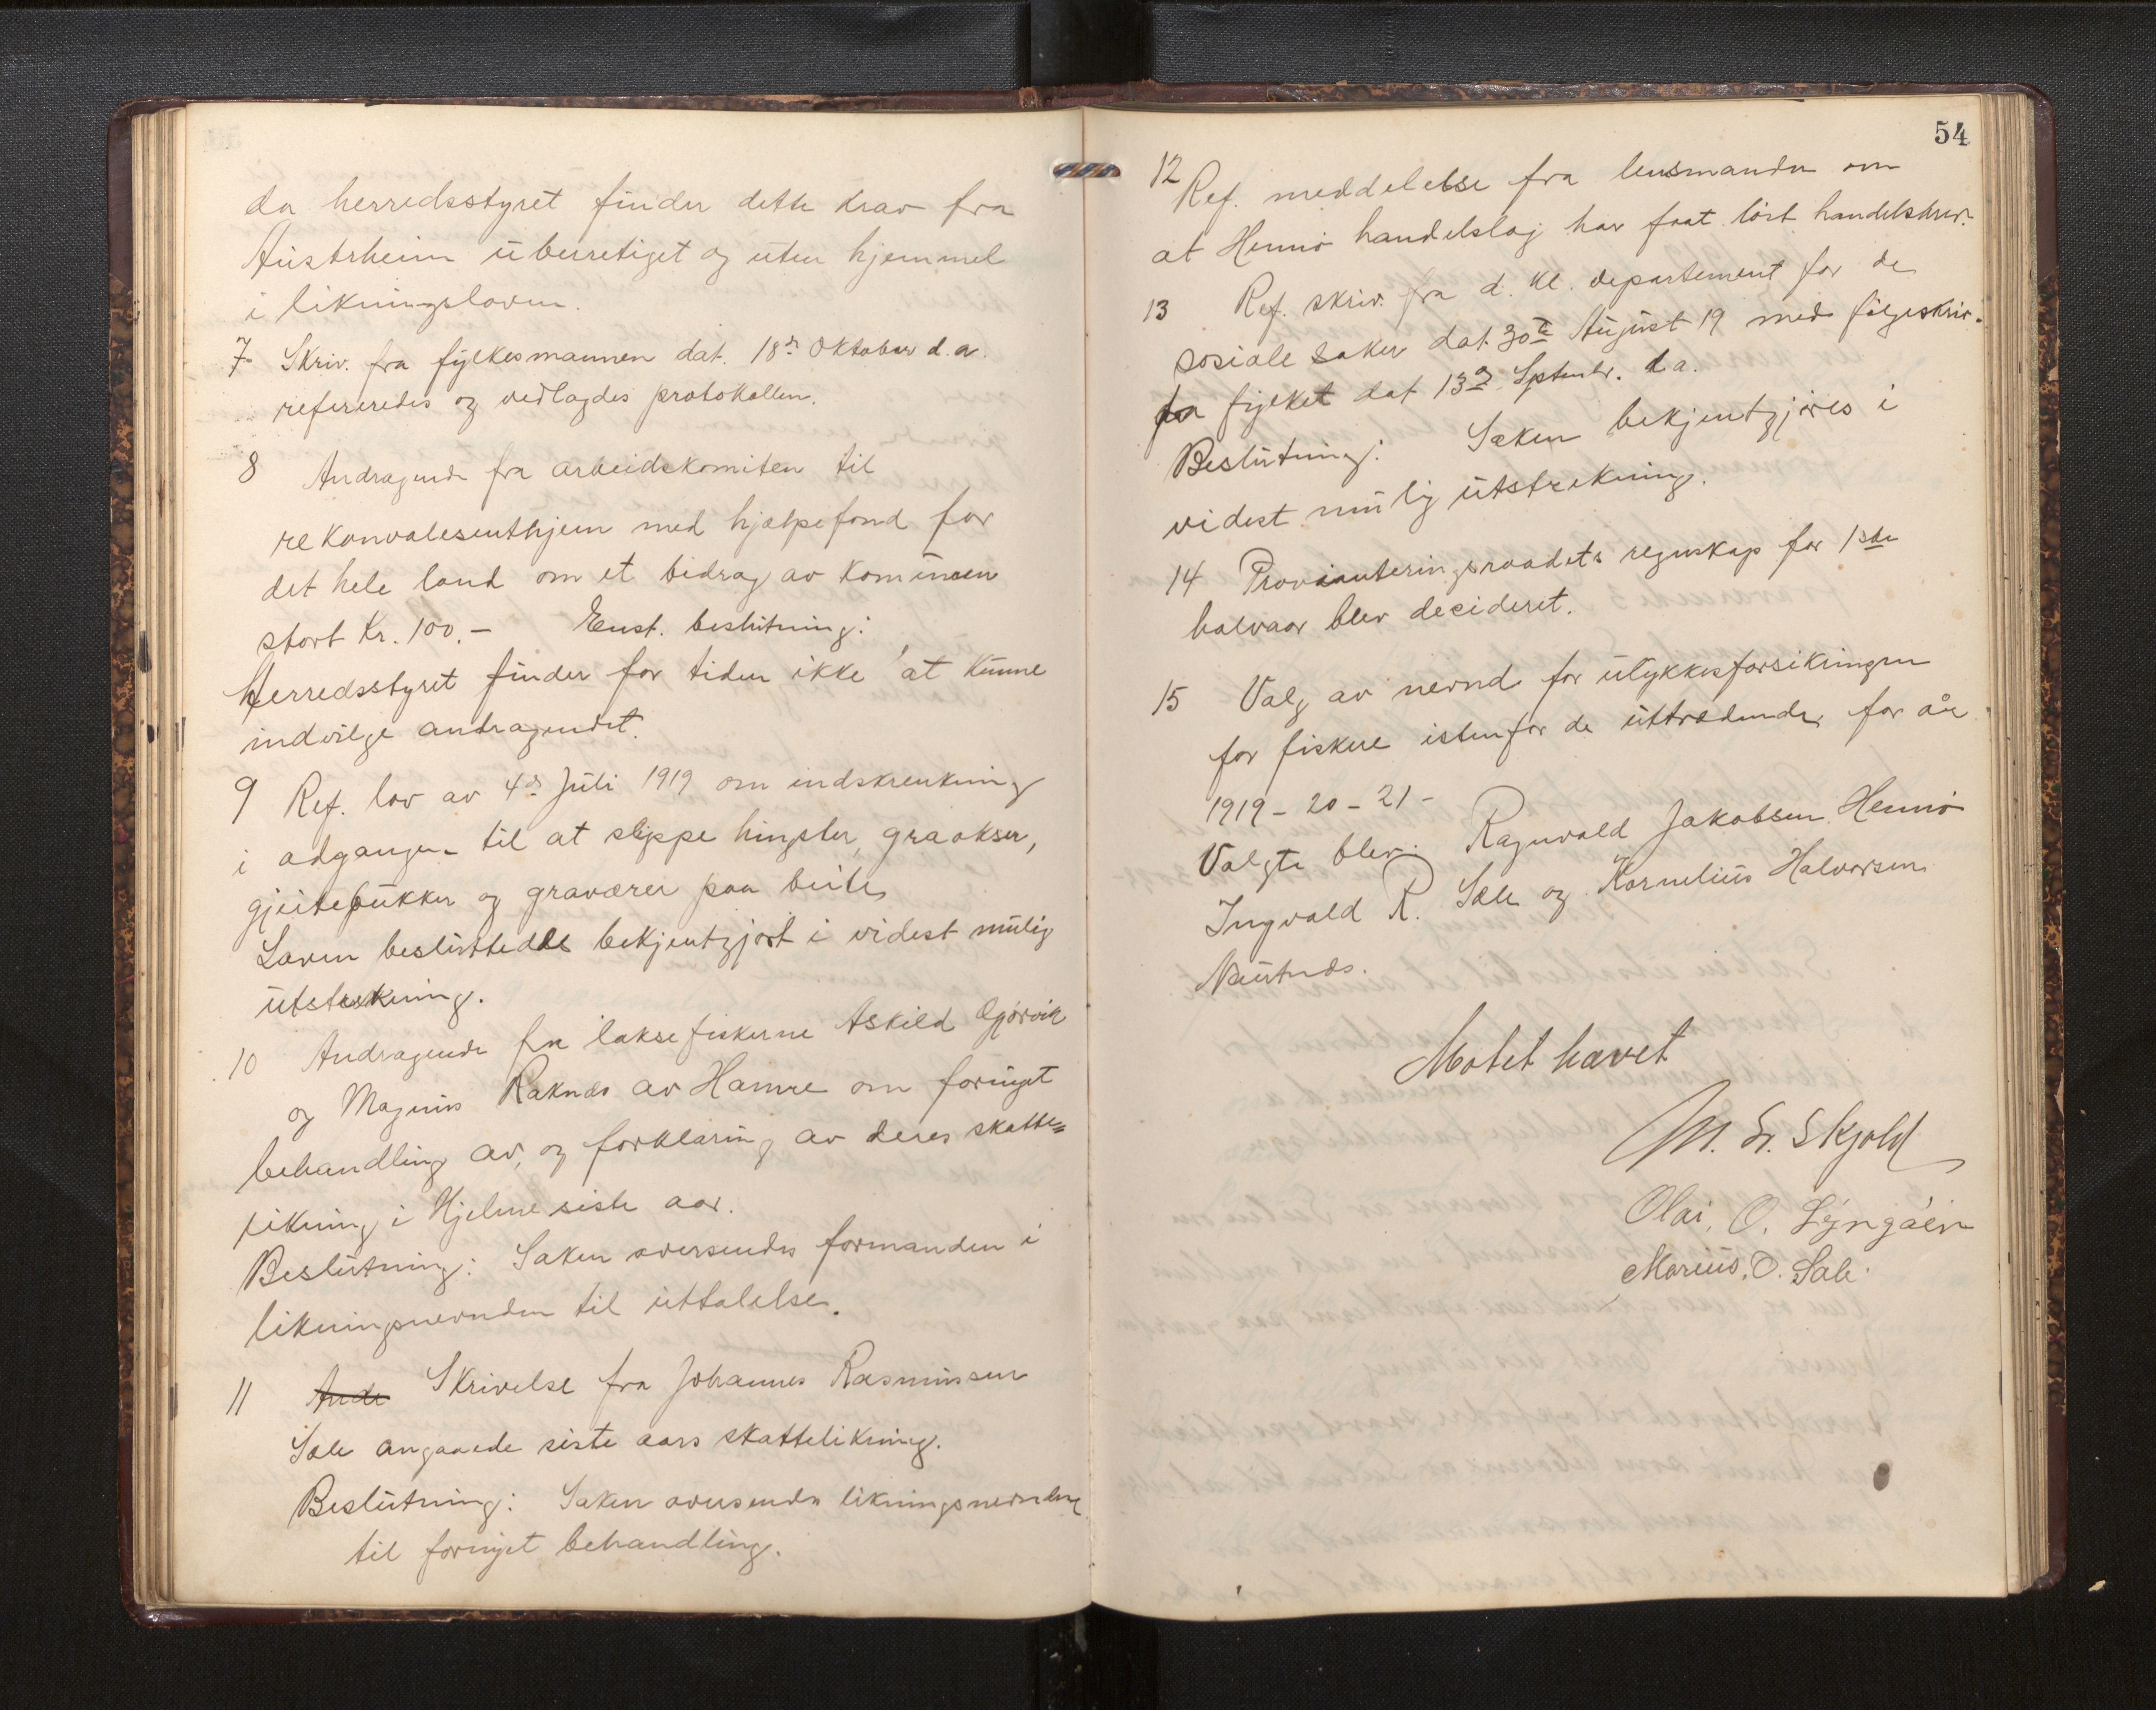 da herredsstyret finder dette krav fra
Austrheim uberretiget og uten hjemmel
i likningsloven.
7 Skriv. fra fylkesmannen dat. 18de Oktober d.a.
refereredes og vedlagdes protokollen.
8 Andragende fra arbeidskomiteen til
rekonvalesenthjem med hjælpefond for
det hele land om et bidrag av komunen
stort Kr. 100.- Enst. beslutning:
Herredsstyret finder for tiden ikke at kunne
indvilge andragendet.
9 Ref. lov av 4de Juli 1919 om indskrenkning
i adgangen til at slippe hingster, graokser,
gjeitebukker og graværer paa beite
Loven besluttedes bekjentgjort i videst mulig
utstrekning.
10 Andragende fra laksefiskerne Askild
og Magnus Raknæs av Hamre om fornyet
behandling av, og forklaring av deres skatte=
likning i Hjelme siste aar.
Beslutning: Saken oversendes formanden i
likningsnevnden til uttalelse.
11 Ande Skrivelse fra Johannes Rasmussen
Sæle angaaede siste aars skattelikning.
Beslutning: Saken oversendes likningsnevnden
til fornyet behandling.
54
12 Ref. meddelelse fra lensmanden om
at Hennø handelslag har faat løst handelsbrev.
13 Ref. skriv. fra d. kl. departement for de
sosiale saker dat. 30te August 19 med følgeskriv.
fra fylket dat 13de Septembr. d.a.
Beslutning: Saken bekjentgjøres i
videst mulig utstrekning.
14 Provianteringsraadets regnskap for 1ste
halvaar blev decideret.
15 Valg av nevnd for ulykkesforsikringen
for fiskere istenfor de uttrædende for år
1919 - 20 - 21 -
Valgte blev: Ragnvald Jakobsen Hennø
Ingvald R. Sæle og Kornelius Halvorsen
Nautnes.
Møtet hævet
M. Skjold
Olai. O. Lyngåen
Marius. O. Sæle.